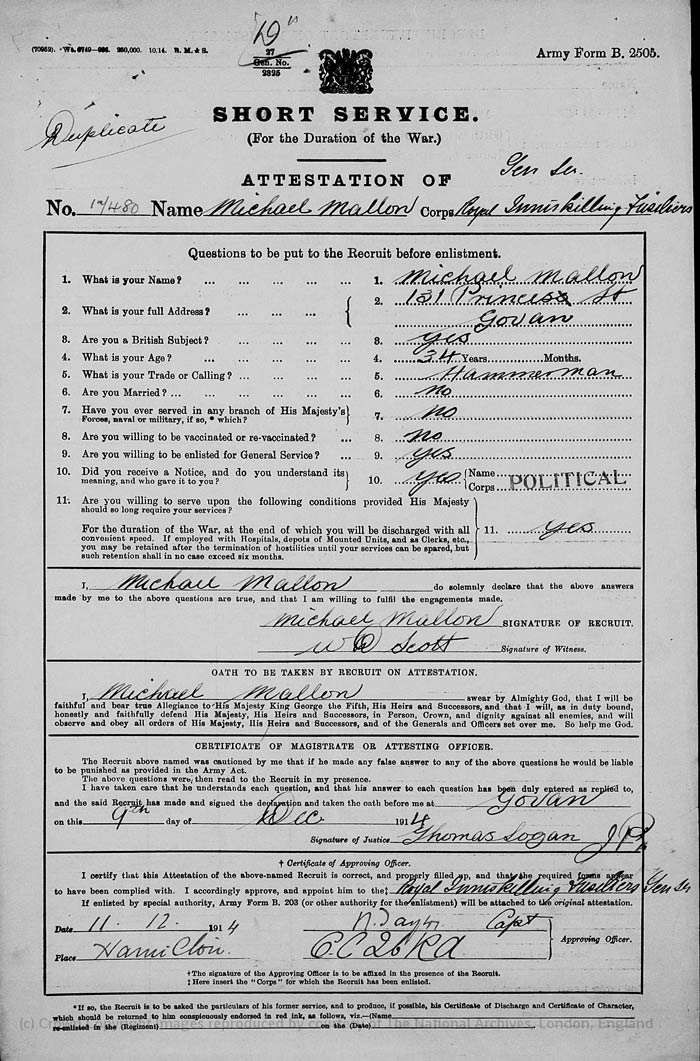 (70952). Wt. 6749—664. 250,000. 10/14. B. M. & S.
"D"
27
Gen. No.
2325
Army Form B. 2505.
Duplicate
SHORT SERVICE.
(For the Duration of the War.)
ATTESTATION OF
Gen Ser.
No. 17/480 Name Michael Mallon Corps Royal Inniskilling Fusiliers
Questions to be put to the Recruit before enlistment.
1. What is your Name? ... ... ... ... 1. Michael Mallon
2. What is your full Address? ... ... ... 2. 131 Princess St
Govan
3. Are you a British Subject? ... ... ... 3. yes
4. What is your Age? ... ... ... ... 4. 34 Years Months.
5. What is your Trade or Calling? ... ... ... 5. Hammerman
6. Are you Married? ... ... ... ... 6. no
7. Have you ever served in any branch of His Majesty's
Forces, naval or military, if so, * which? 7. no
8. Are you willing to be vaccinated or re-vaccinated? ... 8. no
9. Are you willing to be enlisted for General Service? ... 9. yes
10. Did you receive a Notice, and do you understand its
meaning, and who gave it to you? 10. yes Name
Corps POLITICAL
11. Are you willing to serve upon the following conditions provided His Majesty
should so long require your services?
For the duration of the War, at the end of which you will be discharged with all
convenient speed. If employed with Hospitals, depots of Mounted Units, and as Clerks, etc.,
you may be retained after the termination of hostilities until your services can be spared, but
such retention shall in no case exceed six months. 11. yes
I, Michael Mallon do solemnly declare that the above answers
made by me to the above questions are true, and that I am willing to fulfil the engagements made.
Michael Mallon SIGNATURE OF RECRUIT.
W D Scott Signature of Witness.
OATH TO BE TAKEN BY RECRUIT ON ATTESTATION.
I, Michael Mallon swear by Almighty God, that I will be
faithful and bear true Allegiance to His Majesty King George the Fifth, His Heirs and Successors, and that I will, as in duty bound,
honestly and faithfully defend His Majesty, His Heirs and Successors, in Person, Crown, and dignity against all enemies, and will
observe and obey all orders of His Majesty, His Heirs and Successors, and of the Generals and Officers set over me. So help me God.
CERTIFICATE OF MAGISTRATE OR ATTESTING OFFICER.
The Recruit above named was cautioned by me that if he made any false answer to any of the above questions he would be liable
to be punished as provided in the Army Act.
The above questions were then read to the Recruit in my presence.
I have taken care that he understands each question, and that his answer to each question has been duly entered as replied to,
and the said Recruit has made and signed the declaration and taken the oath before me at Govan
on this 9th day of Dec 1914
Signature of Justice Thomas Logan J.P.
† Certificate of Approving Officer.
I certify that this Attestation of the above-named Recruit is correct, and properly filled up, and that the required forms appear
to have been complied with. I accordingly approve, and appoint him to the‡ Royal Inniskilling Fusiliers Gen Ser
If enlisted by special authority, Army Form B. 203 (or other authority for the enlistment) will be attached to the original attestation.
Date 11. 12. 1914 Capt
Place Hamilton. Approving Officer.
† The signature of the Approving Officer is to be affixed in the presence of the Recruit.
‡ Here insert the "Corps" for which the Recruit has been enlisted.
* If so, the Recruit is to be asked the particulars of his former service, and to produce, if possible, his Certificate of Discharge and Certificate of Character,
which should be returned to him conspicuously endorsed in red ink, as follows, viz.—(Name)
re-enlisted in the (Regiment) on the (Date)
(c) Crown Copyright Images reproduced by courtesy of The National Archives, London, England